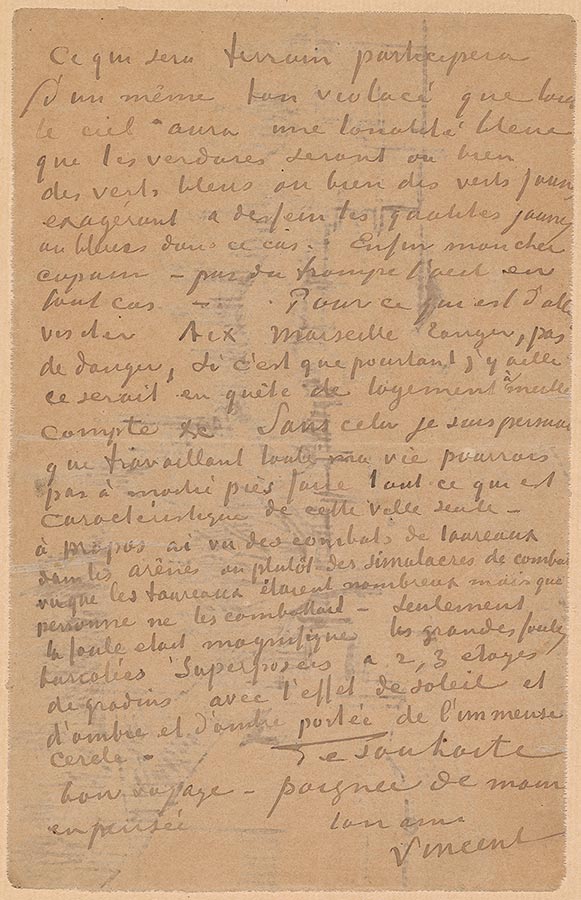 Ce qui sera terrain participera
d'un même ton violacé que tout
le ciel aura une tonalité bleue
que les verdures seront ou bien
des verts bleus ou bien des verts jaunes
exagérant a dessein les qualités jaunes
ou bleues dans ce cas. Enfin mon cher
copain – pas du trompe l'oeil en
tout cas – . Pour ce qui est d'aller
visiter Aix Marseille Tanger, pas
de danger, si c'est que pourtant j'y aille
ce serait en quête de logement à meilleur
compte &c Sans cela je suis persuadé
que travaillant toute ma vie pourrais
pas à moitié près faire tout ce qui est
caractéristique de cette ville seule –
à propos ai vu des combats de taureaux
dans les arènes ou plutôt des simulacres de combat
vu que les taureaux étaient nombreux mais que
personne ne les combattait – Seulement
la foule etait magnifique les grandes foules
bariolées superposées a 2, 3 etages
de gradins avec l'effet de soleil et
d'ombre et d'ombre portée de l'immense
cercle.
Je souhaite
bon voyage – poignée de main
en pensée ton ami
Vincent